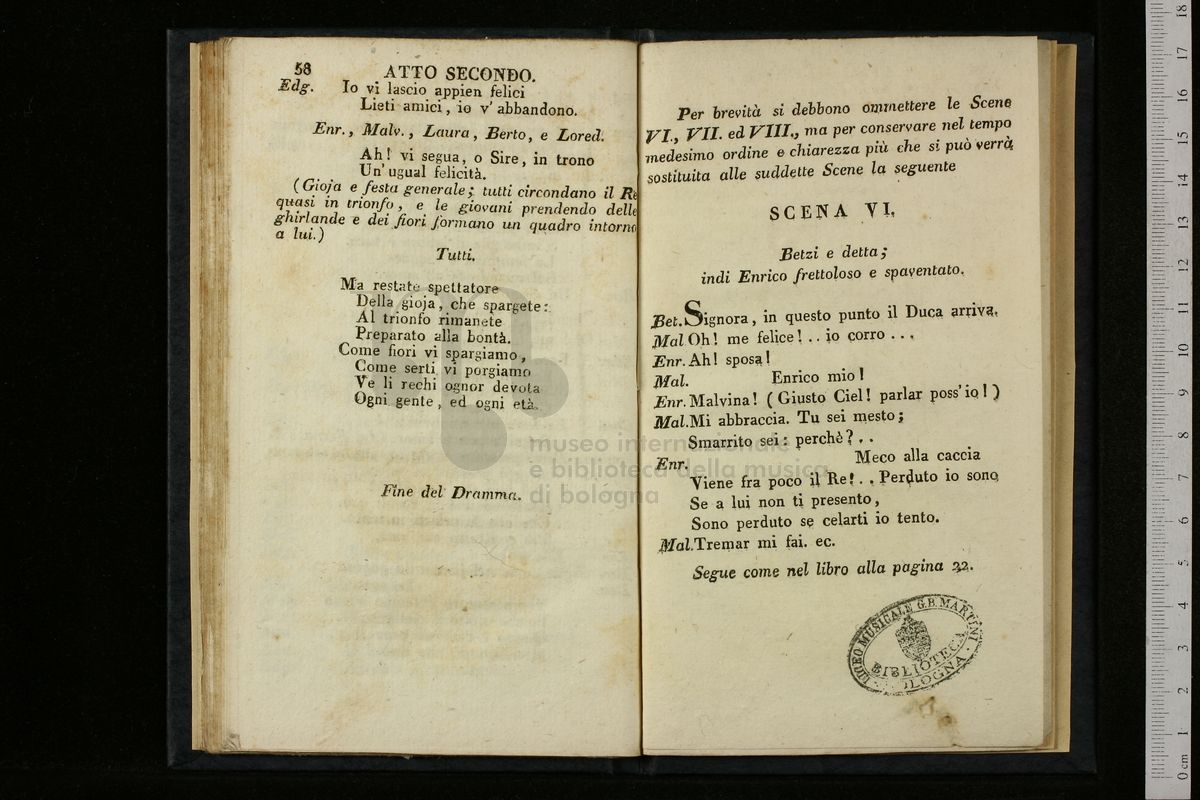 58
ATTO SECONDO.
Edg. Io vi lascio appien felici
Lieti amici, io v' abbandono.
Enr., Malv., Laura, Berto, e Lored.
Ah! vi segua, o Sire, in trono
Un' ugual felicità.
(Gioja e festa generale; tutti circondano il Re
quasi in trionfo, e le giovani prendendo delle
ghirlande e dei fiori formano un quadro intorno
a lui.)
Tutti.
Ma restate spettatore
Della gioja, che spargete:
Al trionfo rimanete
Preparato alla bontà.
Come fiori vi spargiamo,
Come serti vi porgiamo
Ve li rechi ognor devota
Ogni gente, ed ogni età.
Fine del Dramma.
Per brevità si debbono ommettere le Scene
VI., VII. ed VIII., ma per conservare nel tempo
medesimo ordine e chiarezza più che si può verrà
sostituita alle suddette Scene la seguente
SCENA VI.
Betzi e detta;
indi Enrico frettoloso e spaventato.
Bet. Signora, in questo punto il Duca arriva.
Mal Oh! me felice! .. io corro ...
Enr. Ah! sposa!
Mal. Enrico mio!
Enr. Malvina! (Giusto Ciel! parlar poss' io!)
Mal. Mi abbraccia. Tu sei mesto;
Smarrito sei: perchè? ..
Enr. Meco alla caccia
Viene fra poco il Re! .. Perduto io sono
Se a lui non ti presento,
Sono perduto se celarti io tento.
Mal. Tremar mi fai. ec.
Segue come nel libro alla pagina 22.
LICEO MUSICALE G.B. MARTINI
BIBLIOTECA
BOLOGNA
museo internazionale
e biblioteca della musica
di bologna
0 cm 1 2 3 4 5 6 7 8 9 10 11 12 13 14 15 16 17 18